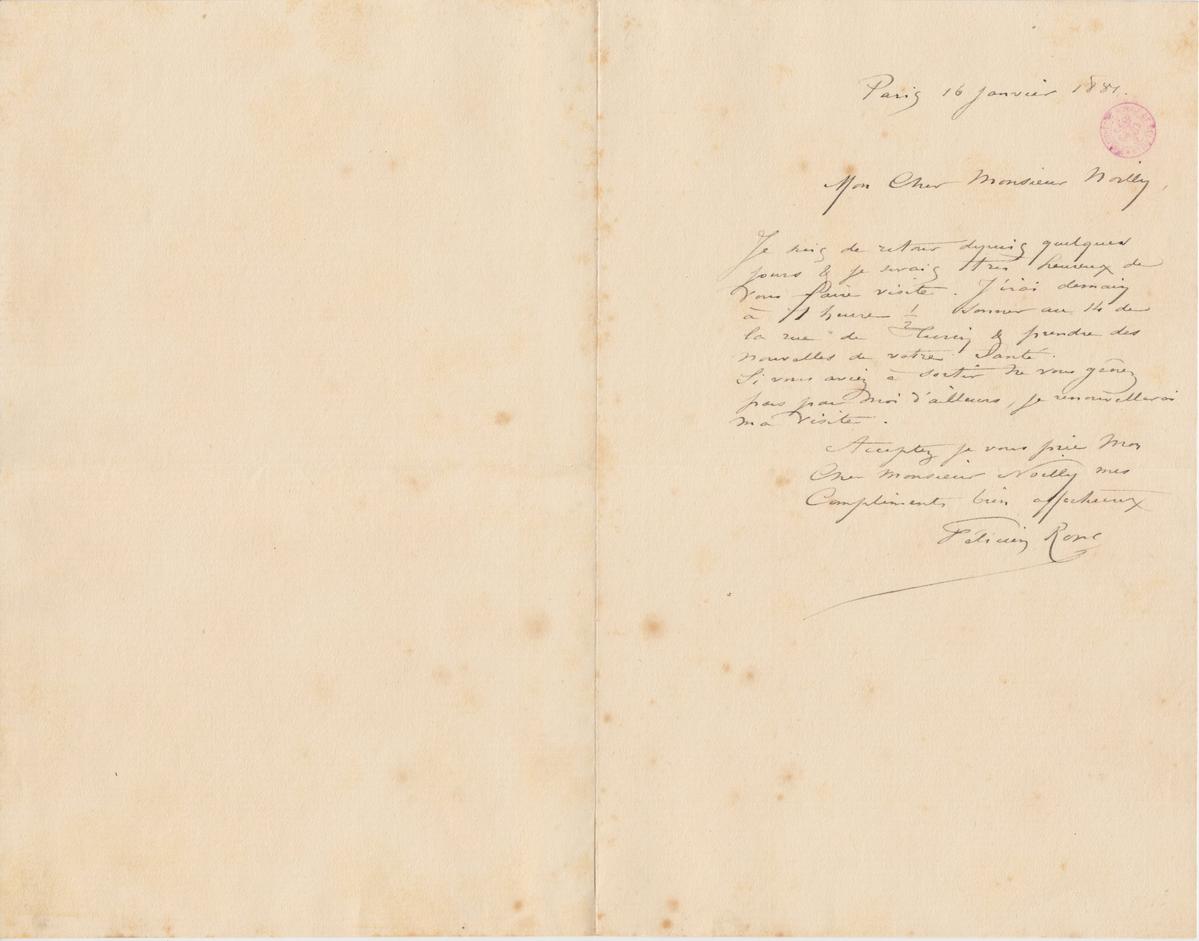 Paris 16 Janvier 1881.
Mon Cher Monsieur Noilly,
Je suis de retour depuis quelques
jours & je serais très heureux de
vous faire visite. J'irai demain
à 1 heure ½ sonner au 14 de
la rue de & prendre des
nouvelles de votre Santé.
Si vous aviez à sortir ne vous gênez
pas pour moi d'ailleurs, je renouvellerai
ma visite.
Acceptez je vous prie Mon
Cher Monsieur Noilly mes
Compliments bien affectueux
Félicien Rops